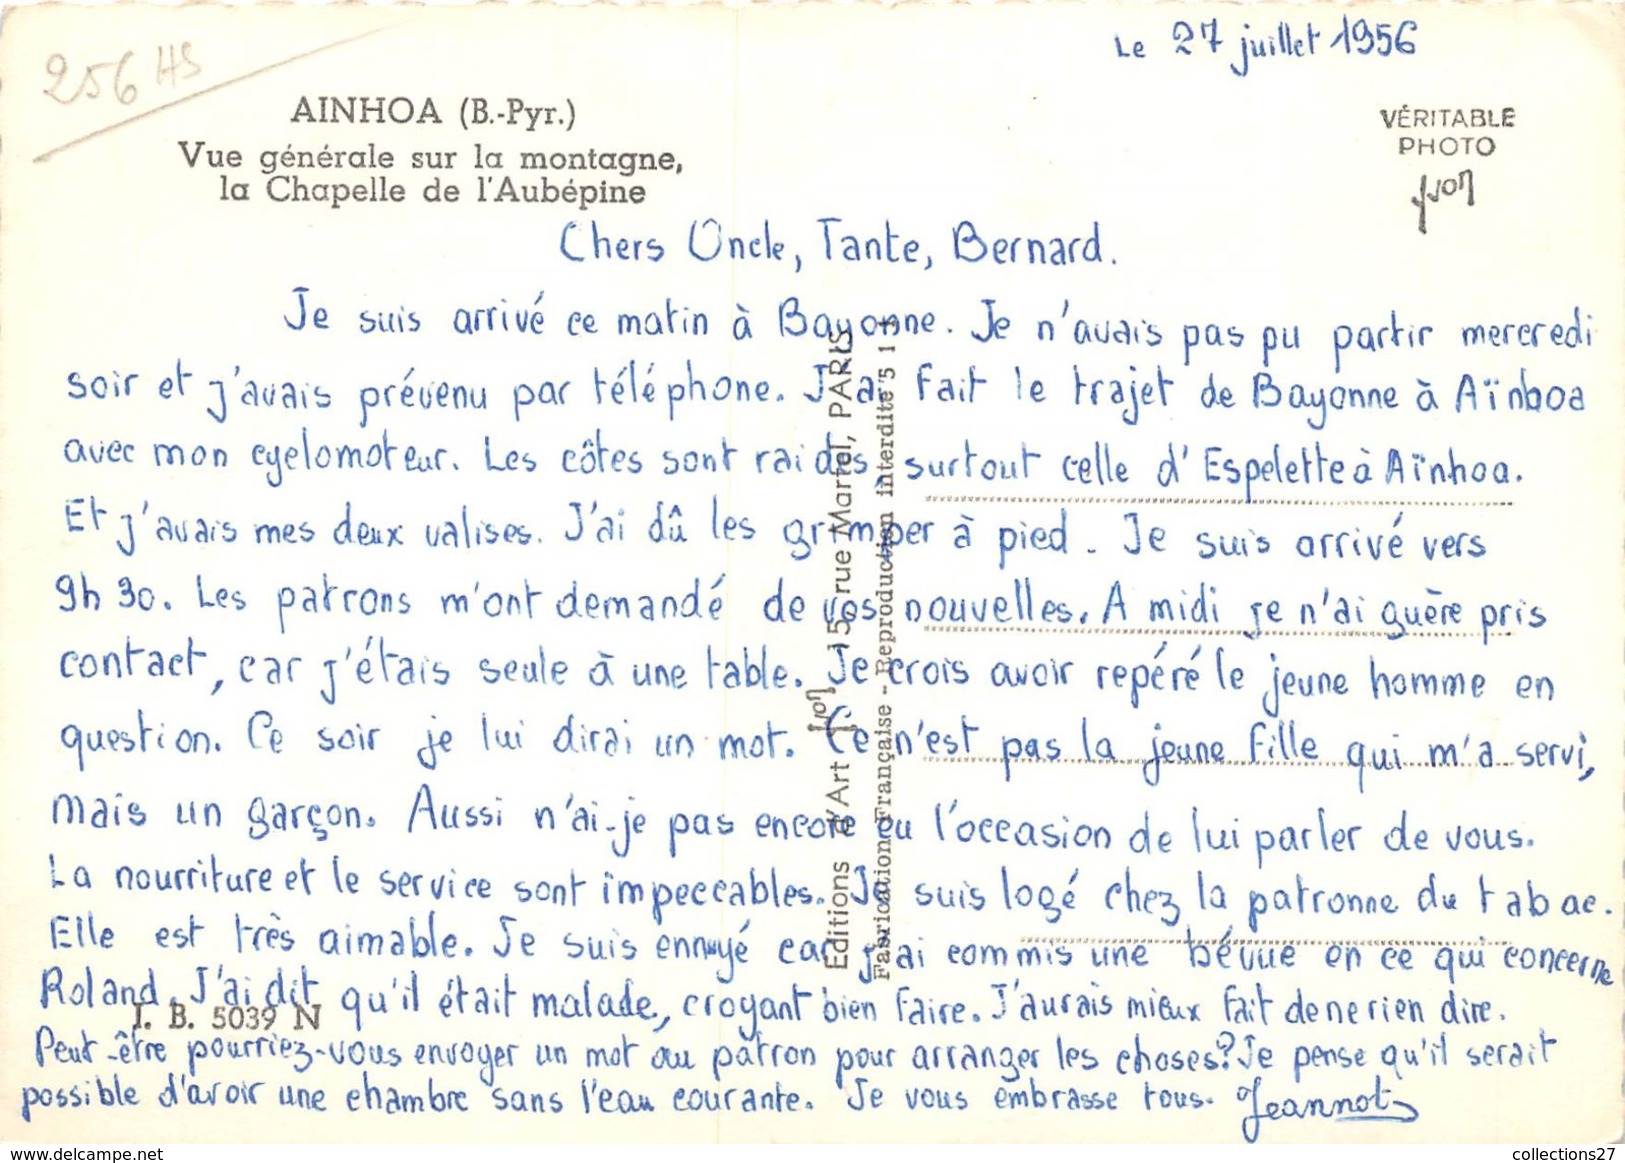 Le 27 juillet 1956
256 HS
AINHOA (B.-Pyr.)
Vue générale sur la montagne,
la Chapelle de l'Aubépine
VÉRITABLE
PHOTO
yvon
Chers Oncle, Tante, Bernard.
Je suis arrivé ce matin à Bayonne. Je n'avais pas pu partir mercredi
soir et j'avais prévenu par téléphone. J'ai fait le trajet de Bayonne à Aïnhoa
avec mon cyclomoteur. Les côtes sont raides, surtout celle d'Espelette à Aïnhoa.
Et j'avais mes deux valises. J'ai dû les grimper à pied. Je suis arrivé vers
9h 30. Les patrons m'ont demandé de vos nouvelles. A midi je n'ai guère pris
contact, car j'étais seule à une table. Je crois avoir repéré le jeune homme en
question. Ce soir je lui dirai un mot. Ce n'est pas la jeune fille qui m'a servi,
mais un garçon. Aussi n'ai-je pas encore eu l'occasion de lui parler de vous.
La nourriture et le service sont impeccables. Je suis logé chez la patronne du tabac.
Elle est très aimable. Je suis ennuyé car j'ai commis une bévue en ce qui concerne
Roland. J'ai dit qu'il était malade, croyant bien faire. J'aurais mieux fait de ne rien dire.
Peut-être pourriez-vous envoyer un mot au patron pour arranger les choses? Je pense qu'il serait
possible d'avoir une chambre sans l'eau courante. Je vous embrasse tous. Jeannot
I. B. 5039 N
Editions d'Art yvon 15, rue Martel, PARIS
Fabrication Française - Reproduction interdite 511
collections27